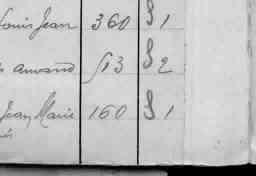 Louis Jean 360 S 1
amand 513 S 2
Jean Marie 160 S 1